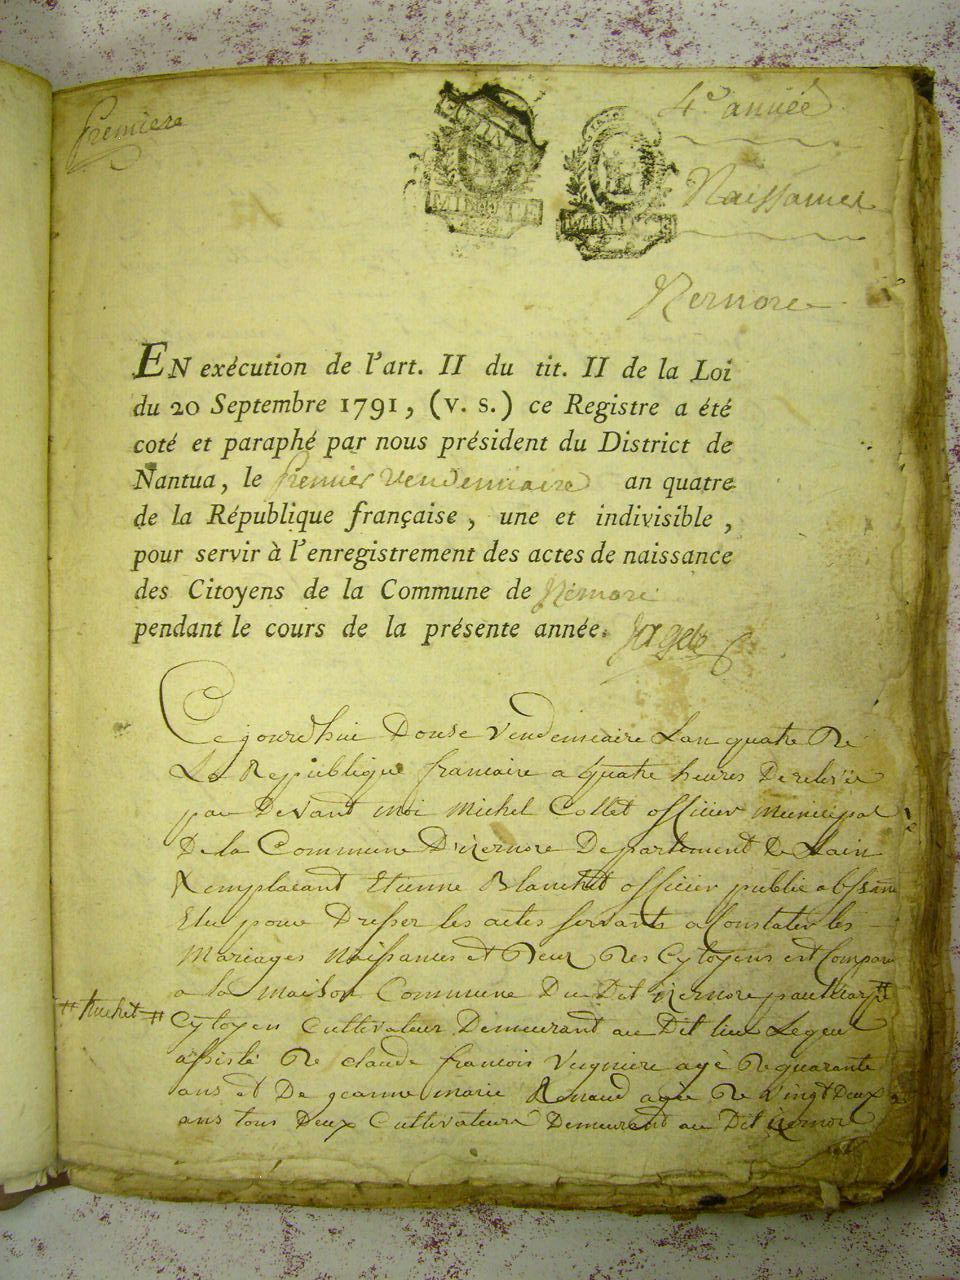 Premiere
4e année
MINUTE
MINUTE
Naissances
Nernore
EN exécution de l'art. II du tit. II de la Loi
du 20 Septembre 1791, (v. s.) ce Registre a été
coté et paraphé par nous président du District de
Nantua, le premier vendemiaire an quatre
de la République française, une et indivisible,
pour servir à l'enregistrement des actes de naissance
des Citoyens de la Commune de Nernore
pendant le cours de la présente année.
Ce jourd'hui Douse Vendemiaire Lan quatre De
La Republique francaise a quatre heures De relevée
par Devant moi Michel Collet officier municipal
De la Commune D'izernore Departement De Lain
Remplacant Etienne Blanchet officier public absent
Elu pour Dresser les actes servants a Constater les
Mariages Naissances et Deces Des Cytoyens est Comparu
a la Maison Commune Du Dit izernore #
# #
Cytoyen Cultivateur Demeurant au Dit lieu Lequel
assisté De claude francois agé De quarante
ans et De jeanne marie Renaud agée De vingt Deux
ans tous Deux Cultivateurs Demeurent au Dit izernore